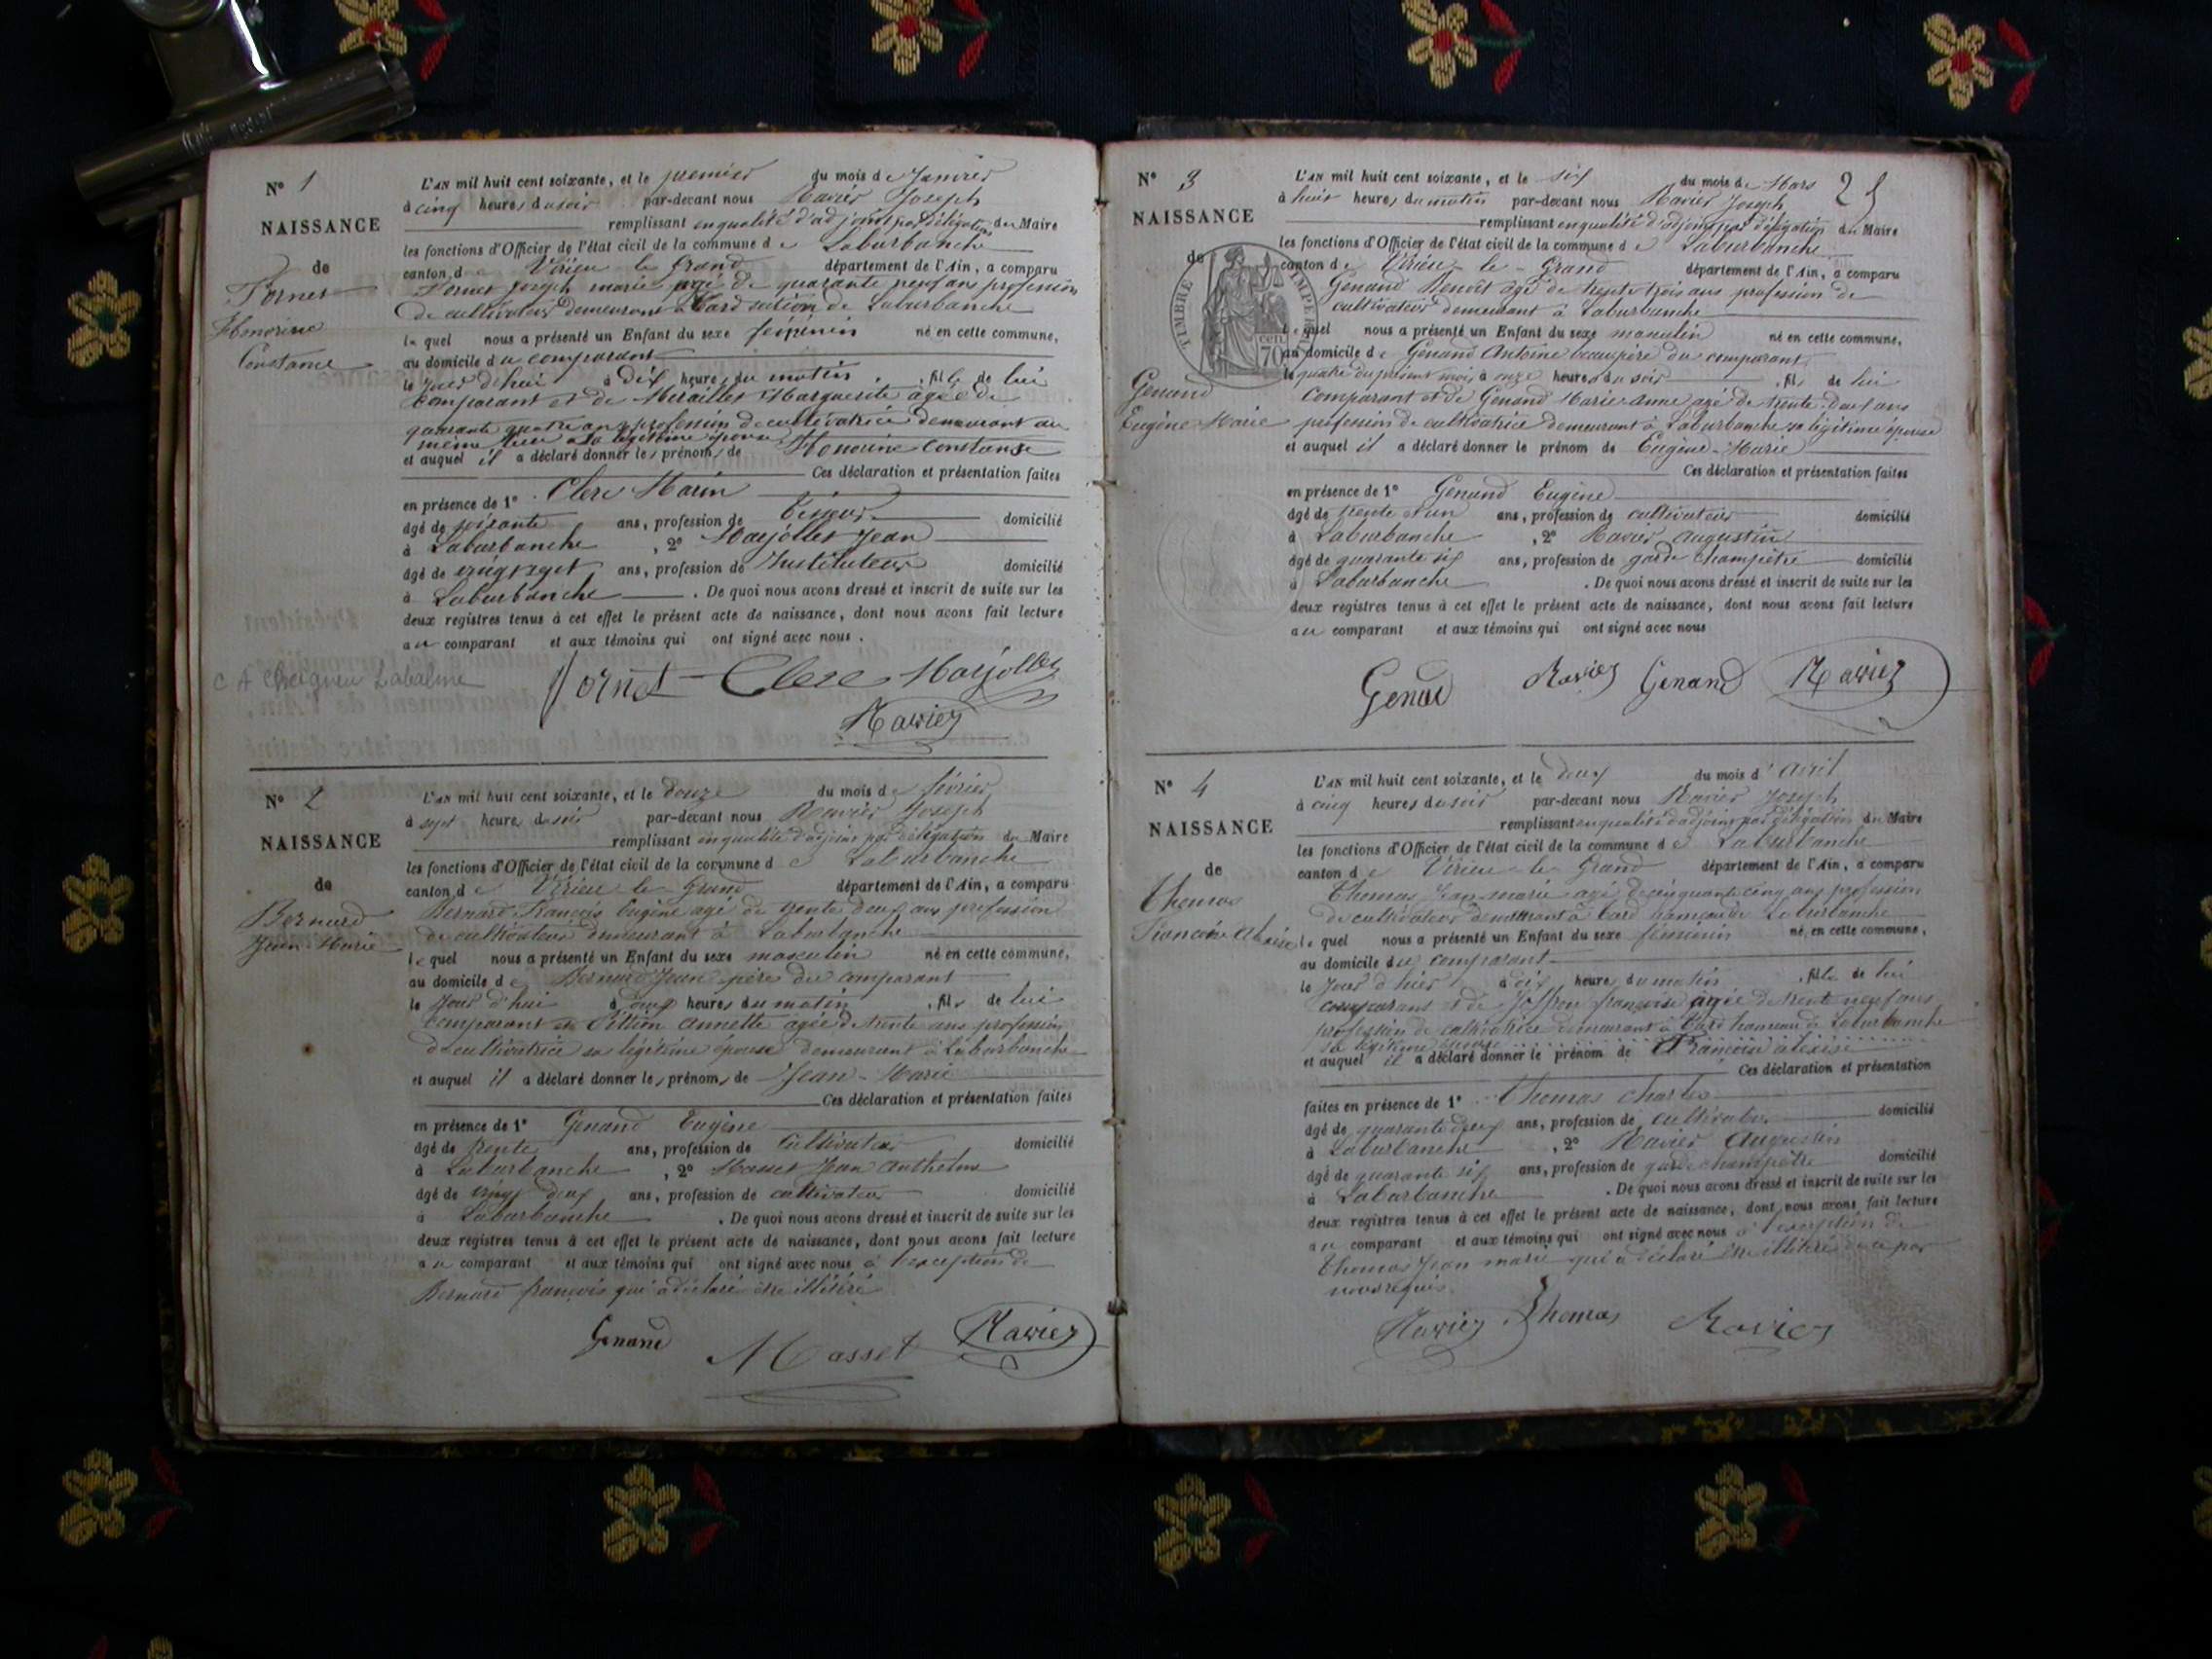 N° 1
NAISSANCE
de
Fornet
Honorine
Constance
L'AN mil huit cent soixante, et le premier du mois de Janvier
à cinq heures du soir par-devant nous Ravier Joseph
remplissant en qualité d'adjoint par délégation du Maire
les fonctions d'Officier de l'état civil de la commune de Laburbanche
canton de Virieu le Grand département de l'Ain, a comparu
Fornet Joseph marie agé de quarante neuf ans profession
de cultivateur demeurant à section de Laburbanche
lequel nous a présenté un Enfant du sexe féminin né en cette commune,
au domicile du comparant
le jour d'hui à dix heures du matin, fille de lui
comparant et de Marguerite agée de
quarante quatre ans profession de cultivatrice demeurant au
même lieu sa légitime épouse
et auquel il a déclaré donner les prénoms de Honorine Constanse
Ces déclaration et présentation faites
en présence de 1° Clerc Marin
âgé de soixante ans, profession de Tisseur domicilié
à Laburbanche, 2° Marjollet Jean
âgé de vingt sept ans, profession de Instituteur domicilié
à Laburbanche. De quoi nous avons dressé et inscrit de suite sur les
deux registres tenus à cet effet le présent acte de naissance, dont nous avons fait lecture
au comparant et aux témoins qui ont signé avec nous.
Fornet Clerc Marjollet
Ravier
N° 2
NAISSANCE
de
Bernard
Jean Marie
L'AN mil huit cent soixante, et le douze du mois de février
à sept heures du soir par-devant nous Ravier Joseph
remplissant en qualité d'adjoint par délégation du Maire
les fonctions d'Officier de l'état civil de la commune de Laburbanche
canton de Virieu le Grand département de l'Ain, a comparu
Bernard François Eugène agé de trente deux ans profession
de cultivateur demeurant à Laburbanche
lequel nous a présenté un Enfant du sexe masculin né en cette commune,
au domicile de Bernard Jean père du comparant
le jour d'hui à heures du matin, fils de lui
comparant et Annette agée de trente ans profession
de cultivatrice sa légitime épouse demeurant à Laburbanche
et auquel il a déclaré donner les prénoms de Jean-Marie
Ces déclaration et présentation faites
en présence de 1° Genand Eugène
âgé de trente ans, profession de Cultivateur domicilié
à Laburbanche, 2° Masset Jean Anthelme
âgé de vingt deux ans, profession de cultivateur domicilié
à Laburbanche. De quoi nous avons dressé et inscrit de suite sur les
deux registres tenus à cet effet le présent acte de naissance, dont nous avons fait lecture
au comparant et aux témoins qui ont signé avec nous à l'exception de
Bernard françois qui a déclaré être illitéré
Genand Masset Ravier
25
N° 3
NAISSANCE
de
TIMBRE IMPERIAL
70 cen.
Genand
Eugène Marie
L'AN mil huit cent soixante, et le six du mois de Mars
à huit heures du matin par-devant nous Ravier Joseph
remplissant en qualité d'adjoint par délégation du Maire
les fonctions d'Officier de l'état civil de la commune de Laburbanche
canton de Virieu-le-Grand département de l'Ain, a comparu
Genand Benoit agé de trente trois ans profession de
cultivateur demeurant à Laburbanche
lequel nous a présenté un Enfant du sexe masculin né en cette commune,
au domicile de Genand Antoine beau père du comparant
le quatre du présent mois, à onze heures du soir, fils de lui
comparant et de Genand Marie-Anne agé de trente deux ans
profession de cultivatrice demeurant à Laburbanche sa légitime épouse
et auquel il a déclaré donner le prénom de Eugène-Marie
Ces déclaration et présentation faites
en présence de 1° Genand Eugène
âgé de trente et un ans, profession de cultivateur domicilié
à Laburbanche, 2° Ravier augustin
âgé de quarante six ans, profession de garde Champêtre domicilié
à Laburbanche. De quoi nous avons dressé et inscrit de suite sur les
deux registres tenus à cet effet le présent acte de naissance, dont nous avons fait lecture
au comparant et aux témoins qui ont signé avec nous
Ravier Genand Ravier
N° 4
NAISSANCE
de
Thomas
L'AN mil huit cent soixante, et le deux du mois d'Avril
à cinq heures du soir par-devant nous Ravier Joseph
remplissant en qualité d'adjoint par délégation du Maire
les fonctions d'Officier de l'état civil de la commune de Laburbanche
canton de Virieu le Grand département de l'Ain, a comparu
Thomas Jean-marie agé de cinquante cinq ans profession
de cultivateur demeurant à hameau de Laburbanche
lequel nous a présenté un Enfant du sexe féminin né en cette commune,
au domicile du comparant
le jour d'hier à dix heures du matin, fille de lui
comparant et de françoise agée de trente neuf ans
profession de cultivatrice demeurant à hameau de Laburbanche
sa légitime épouse
et auquel il a déclaré donner le prénom de
Ces déclaration et présentation
faites en présence de 1° Thomas charles
âgé de quarante deux ans, profession de cultivateur domicilié
à Laburbanche, 2° Ravier Augustin
âgé de quarante six ans, profession de garde champêtre domicilié
à Laburbanche. De quoi nous avons dressé et inscrit de suite sur les
deux registres tenus à cet effet le présent acte de naissance, dont nous avons fait lecture
au comparant et aux témoins qui ont signé avec nous à l'exception de
Thomas Jean marie qui a déclaré être illitéré de ce par
nous requis.
Ravier Thomas Ravier